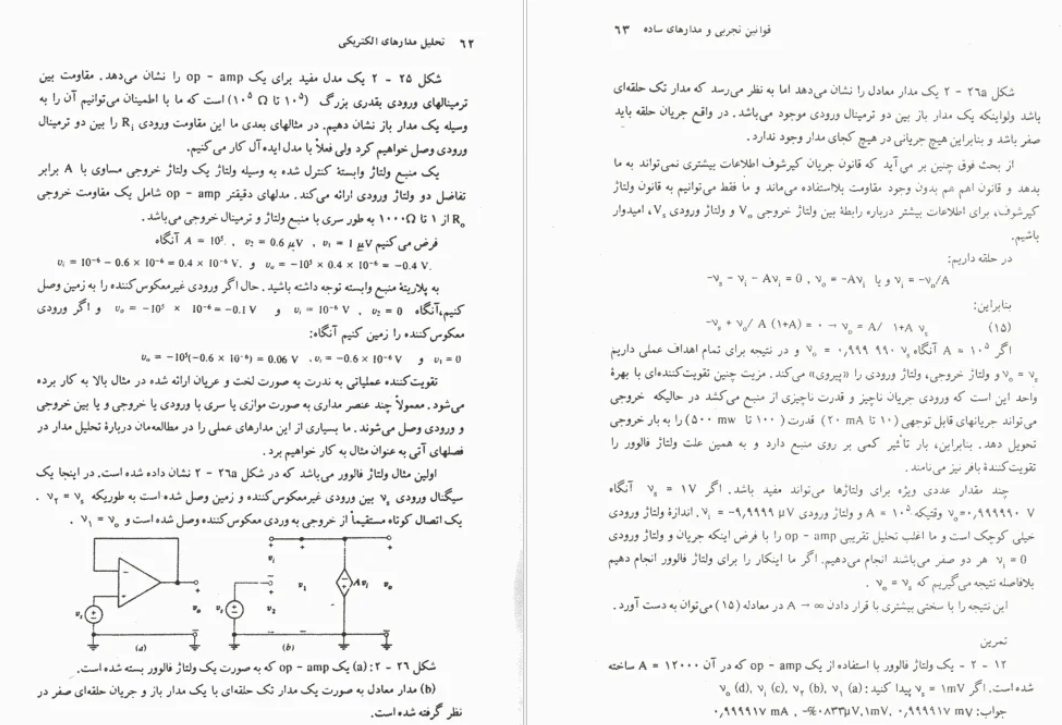 ۶۲ تحلیل مدارهای الکتریکی
شکل ۲۵ - ۲ یک مدل مفید برای یک op - amp را نشان می‌دهد. مقاومت بین
ترمینالهای ورودی بقدری بزرگ (۱۰⁵ تا ۱۰⁵ Ω) است که ما با اطمینان می‌توانیم آن را به
وسیله یک مدار باز نشان دهیم. در مثالهای بعدی ما این مقاومت ورودی Ri را بین دو ترمینال
ورودی وصل خواهیم کرد ولی فعلاً با مدل ایده‌آل کار می‌کنیم.
یک منبع ولتاژ وابستهٔ کنترل شده به وسیله ولتاژ یک ولتاژ خروجی مساوی با A برابر
تفاضل دو ولتاژ ورودی ارائه می‌کند. مدلهای دقیقتر op - amp شامل یک مقاومت خروجی
Ro از ۱ تا ۱۰۰۰Ω به طور سری با منبع ولتاژ و ترمینال خروجی می‌باشد.
فرض می‌کنیم A = 10⁵ , v₂ = 0.6 μV , v₁ = 1 μV آنگاه
vᵢ = 10⁻⁶ − 0.6 × 10⁻⁶ = 0.4 × 10⁻⁶ V. و vₒ = −10⁵ × 0.4 × 10⁻⁶ = −0.4 V.
به پلاریتهٔ منبع وابسته توجه داشته باشید. حال اگر ورودی غیرمعکوس‌کننده را به زمین وصل
کنیم، آنگاه v₂ = 0 , vᵢ = 10⁻⁶ V و vₒ = −10⁵ × 10⁻⁶ = −0.1 V و اگر ورودی
معکوس‌کننده را زمین کنیم آنگاه:
vₒ = −10⁵(−0.6 × 10⁻⁶) = 0.06 V , vᵢ = −0.6 × 10⁻⁶ V و v₁ = 0
تقویت‌کننده عملیاتی به ندرت به صورت لخت و عریان ارائه شده در مثال بالا به کار برده
می‌شود. معمولاً چند عنصر مداری به صورت موازی یا سری با ورودی یا خروجی و یا بین خروجی
و ورودی وصل می‌شوند. ما بسیاری از این مدارهای عملی را در مطالعه‌مان دربارهٔ تحلیل مدار در
فصلهای آتی به عنوان مثال به کار خواهیم برد.
اولین مثال ولتاژ فالوور می‌باشد که در شکل ۲۶a - ۲ نشان داده شده است. در اینجا یک
سیگنال ورودی vs بین ورودی غیرمعکوس‌کننده و زمین وصل شده است به طوریکه v₂ = vs .
یک اتصال کوتاه مستقیماً از خروجی به وردی معکوس‌کننده وصل شده است و v₁ = vₒ .
vs vₒ vᵢ v₁ v₂ vs Avᵢ vₒ
(a) (b)
شکل ۲۶ - ۲ : (a) یک op - amp که به صورت یک ولتاژ فالوور بسته شده است.
(b) مدار معادل به صورت یک مدار تک حلقه‌ای با یک مدار باز و جریان حلقه‌ای صفر در
نظر گرفته شده است.
قوانین تجربی و مدارهای ساده ۶۳
شکل ۲۶a - ۲ یک مدار معادل را نشان می‌دهد اما به نظر می‌رسد که مدار تک حلقه‌ای
باشد ولو اینکه یک مدار باز بین دو ترمینال ورودی موجود می‌باشد. در واقع جریان حلقه باید
صفر باشد و بنابراین هیچ جریانی در هیچ کجای مدار وجود ندارد.
از بحث فوق چنین بر می‌آید که قانون جریان کیرشوف اطلاعات بیشتری نمی‌تواند به ما
بدهد و قانون اهم هم بدون وجود مقاومت بلااستفاده می‌ماند و ما فقط می‌توانیم به قانون ولتاژ
کیرشوف، برای اطلاعات بیشتر درباره رابطهٔ بین ولتاژ خروجی Vo و ولتاژ ورودی Vs، امیدوار
باشیم.
در حلقه داریم:
-vs - vi - Avi = 0 , vo = -Avi یا و vi = -vo/A
بنابراین:
-vs + vo/ A (1+A) = ۰ → vo = A/ 1+A vs (۱۵)
اگر A = ۱۰⁵ آنگاه vo = ۰٫۹۹۹ ۹۹۰ vs و در نتیجه برای تمام اهداف عملی داریم
vo = vs و ولتاژ خروجی، ولتاژ ورودی را «پیروی» می‌کند. مزیت چنین تقویت‌کننده‌ای با بهرهٔ
واحد این است که ورودی جریان ناچیز و قدرت ناچیزی از منبع می‌کشد در حالیکه خروجی
می‌تواند جریانهای قابل توجهی (۱۰ تا ۲۰ mA) قدرت (۱۰۰ تا ۵۰۰ mw) را به بار خروجی
تحویل دهد. بنابراین، بار تأثیر کمی بر روی منبع دارد و به همین علت ولتاژ فالوور را
تقویت‌کنندهٔ بافر نیز می‌نامند.
چند مقدار عددی ویژه برای ولتاژها می‌تواند مفید باشد. اگر vs = ۱V آنگاه
vo=۰٫۹۹۹۹۹۰ V وقتیکه A = ۱۰⁵ و ولتاژ ورودی vi = -۹٫۹۹۹۹ μV. اندازهٔ ولتاژ ورودی
خیلی کوچک است و ما اغلب تحلیل تقریبی op - amp را با فرض اینکه جریان و ولتاژ ورودی
vi = 0 هر دو صفر می‌باشند انجام می‌دهیم. اگر ما اینکار را برای ولتاژ فالوور انجام دهیم
بلافاصله نتیجه می‌گیریم که vo = vs .
این نتیجه را با سختی بیشتری با قرار دادن A → ∞ در معادله (۱۵) می‌توان به دست آورد.
تمرین
۱۲ - ۲ - یک ولتاژ فالوور با استفاده از یک op - amp که در آن A = ۱۲۰۰۰ ساخته
شده است. اگر vs = ۱mV پیدا کنید: vo (d), vi (c), v۲ (b), v۱ (a)
جواب: ۰٫۹۹۹۹۱۷ mV, ۱mV, -۰٫۰۸۳۳μV, ۰٫۹۹۹۹۱۷ mA